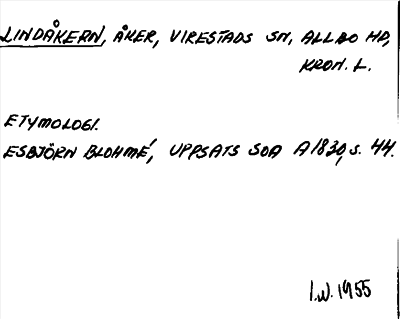 LINDÅKERN, ÅKER, VIRESTADS SN, ALLBO HD,
KRON. L.
ETYMOLOGI.
ESBJÖRN BLOHMÉ, UPPSATS SOA A1830, S. 44.
I.W. 1955